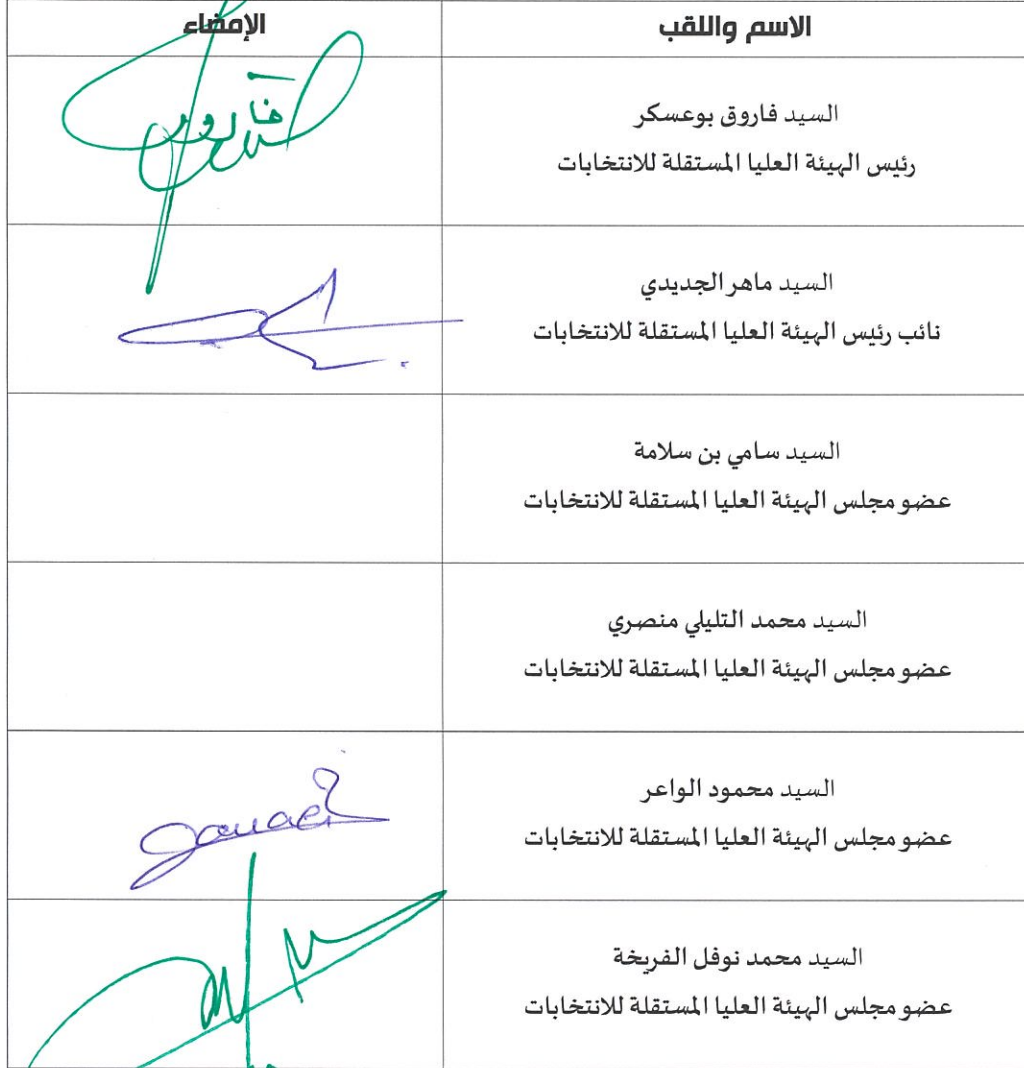 الاسم واللقب
الإمضاء
السيد فاروق بوعسكر
رئيس الهيئة العليا المستقلة للانتخابات
فاروق
السيد ماهر الجديدي
نائب رئيس الهيئة العليا المستقلة للانتخابات
السيد سامي بن سلامة
عضو مجلس الهيئة العليا المستقلة للانتخابات
السيد محمد التليلي منصري
عضو مجلس الهيئة العليا المستقلة للانتخابات
السيد محمود الواعر
عضو مجلس الهيئة العليا المستقلة للانتخابات
السيد محمد نوفل الفريخة
عضو مجلس الهيئة العليا المستقلة للانتخابات